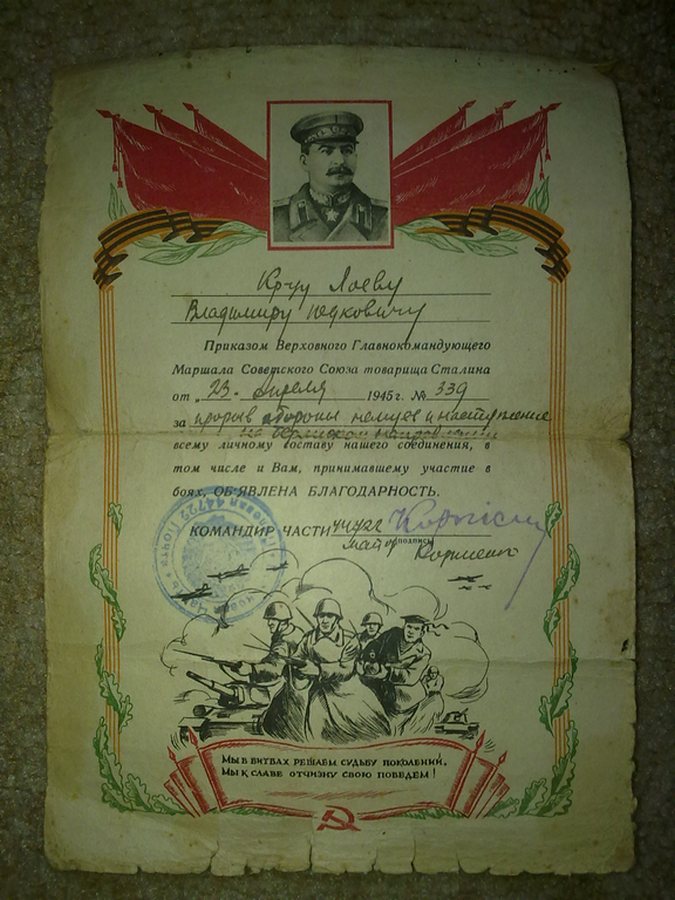 Владимиру
Приказом Верховного Главнокомандующего
Маршала Советского Союза товарища Сталина
от „23" апреля 1945 г. № 339
за прорыв обороны немцев и наступление
на берлинском направлении
всему личному составу нашего соединения, в
том числе и Вам, принимавшему участие в
боях, ОБ'ЯВЛЕНА БЛАГОДАРНОСТЬ.
КОМАНДИР ЧАСТИ 44722
(подпись)
майор
Полевая 44722 Почта
часть
МЫ В БИТВАХ РЕШАЕМ СУДЬБУ ПОКОЛЕНИЙ,
МЫ К СЛАВЕ ОТЧИЗНУ СВОЮ ПОВЕДЕМ!